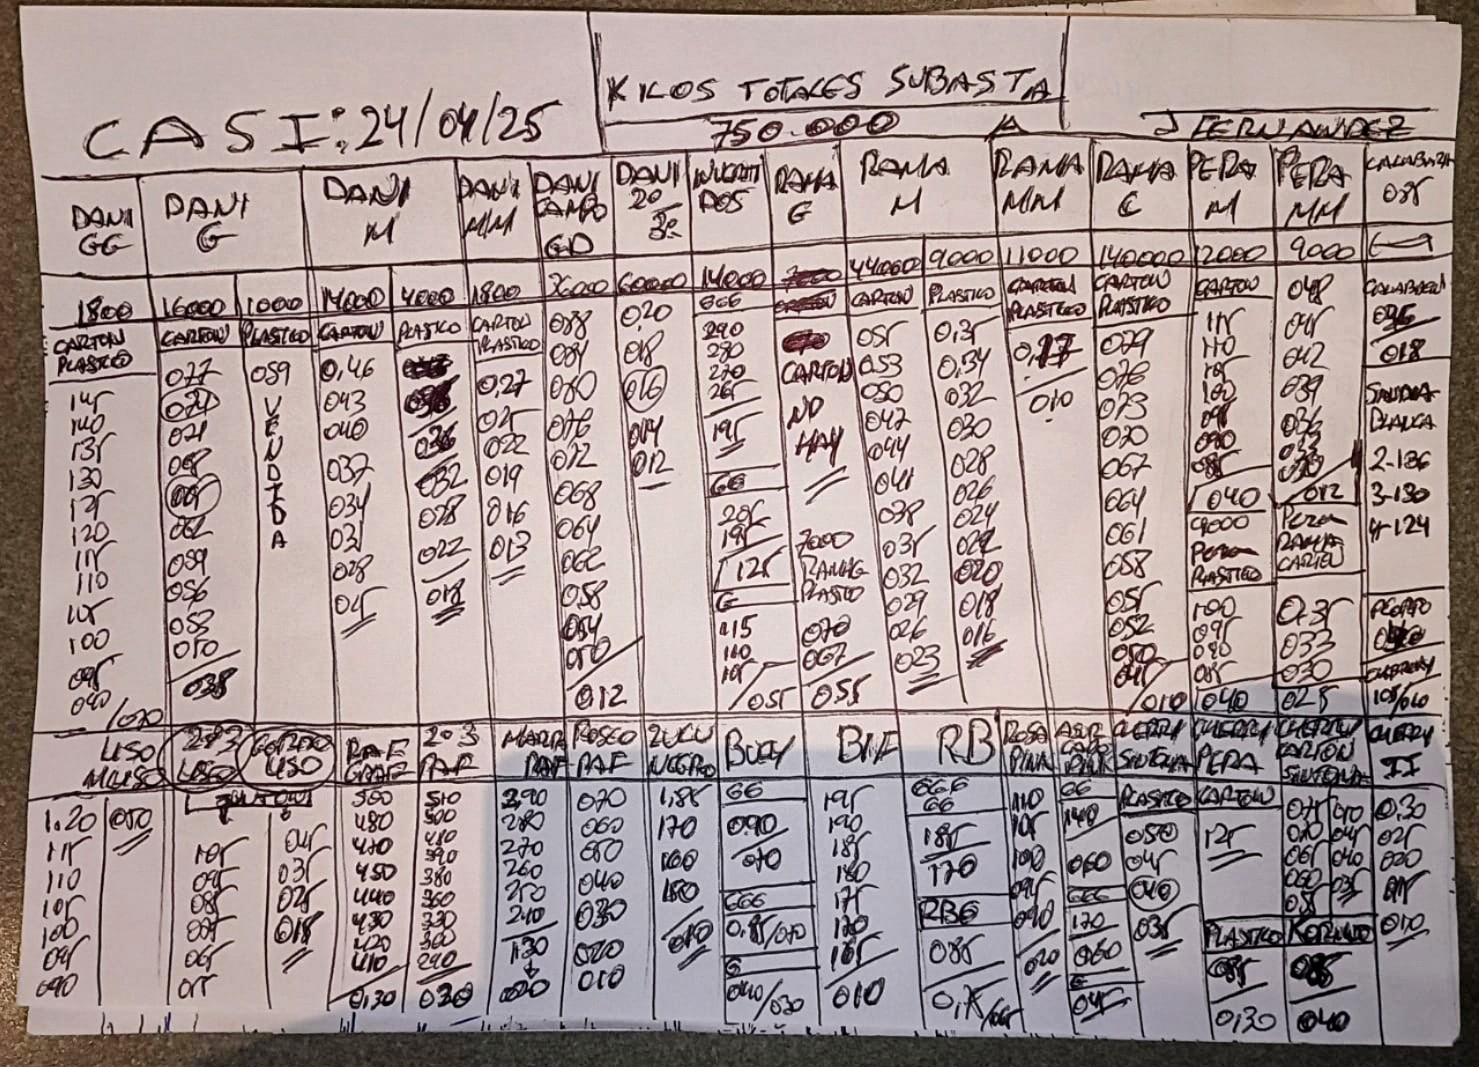 KILOS TOTALES SUBASTA
CASI: 24/04/25
750.000 A
J FERNANDEZ
DANI GG
DANI G
DANI M
DANI M/M
DANI CAMPO GD
DANI 20
RAMA G
RAMA M
RAMA M/M
RAMA C
PERA M
PERA MM
CALABAZA 085
1800
16000
1000
14000
4000
1800
60000
14000
44000
9000
11000
140000
12000
9000
CARTON PLASTICO
CARTON
PLASTICO
CARTON
PLASTICO
CARTON PLASTICO
GGG
CARTON
PLASTICO
CARTON PLASTICO
CARTON PLASTICO
CARTON
145
140
135
130
125
120
115
110
105
100
095
090/070
077
074
071
068
065
062
059
056
053
050
038
059
VENDIDA
0,46
043
040
037
034
031
028
025
036
032
028
022
018
0,27
025
022
019
016
013
088
084
080
076
072
068
064
062
058
054
050
012
0,20
018
016
014
012
290
280
270
265
195
GG
205
195
125
G
115
110
105
055
CARTON
NO
HAY
7000
RAMA G
PLASTICO
070
067
055
055
0,53
050
047
044
041
038
035
032
029
026
023
0,35
0,34
032
030
028
026
024
022
020
018
016
0,17
010
079
076
073
070
067
064
061
058
055
052
050
045
010
115
110
105
100
095
090
085
040
PERA
PLASTICO
100
095
090
085
040
048
045
042
039
036
033
030
012
PERA
RAMA
CARTON
0,35
033
030
025
018
SANDIA
BLANCA
2-136
3-130
4-124
LISO
M LISO
2 Y 3
LISO
GORDO
LISO
RAF
2 O 3
RAF
MARR
RAF
ROSCO
RAF
ZULU
NEGRO
BUCY
BIF
RB
ROSA
PINK
CHERRY
SINTONIA
CHERRY
PERA
CHERRY
CARTON
SINTONIA
CHERRY
II
1.20
115
110
105
100
095
090
050
105
095
085
075
065
055
045
035
025
018
500
480
470
450
440
430
420
410
0,30
510
500
480
390
380
360
330
300
290
030
290
280
270
260
250
240
130
020
070
060
050
040
030
020
010
1,85
170
160
150
010
GG
090
070
GGG
0,85/070
G
040/030
195
190
185
180
175
170
165
010
GGG
GG
185
170
RBG
085
110
105
100
095
090
020
GG
140
060
GGG
170
060
G
045
PLASTICO
050
045
040
035
CARTON
125
PLASTICO
085
0,30
075
070
065
060
055
050
045
040
035
KORINTO
085
040
0.30
025
020
015
010